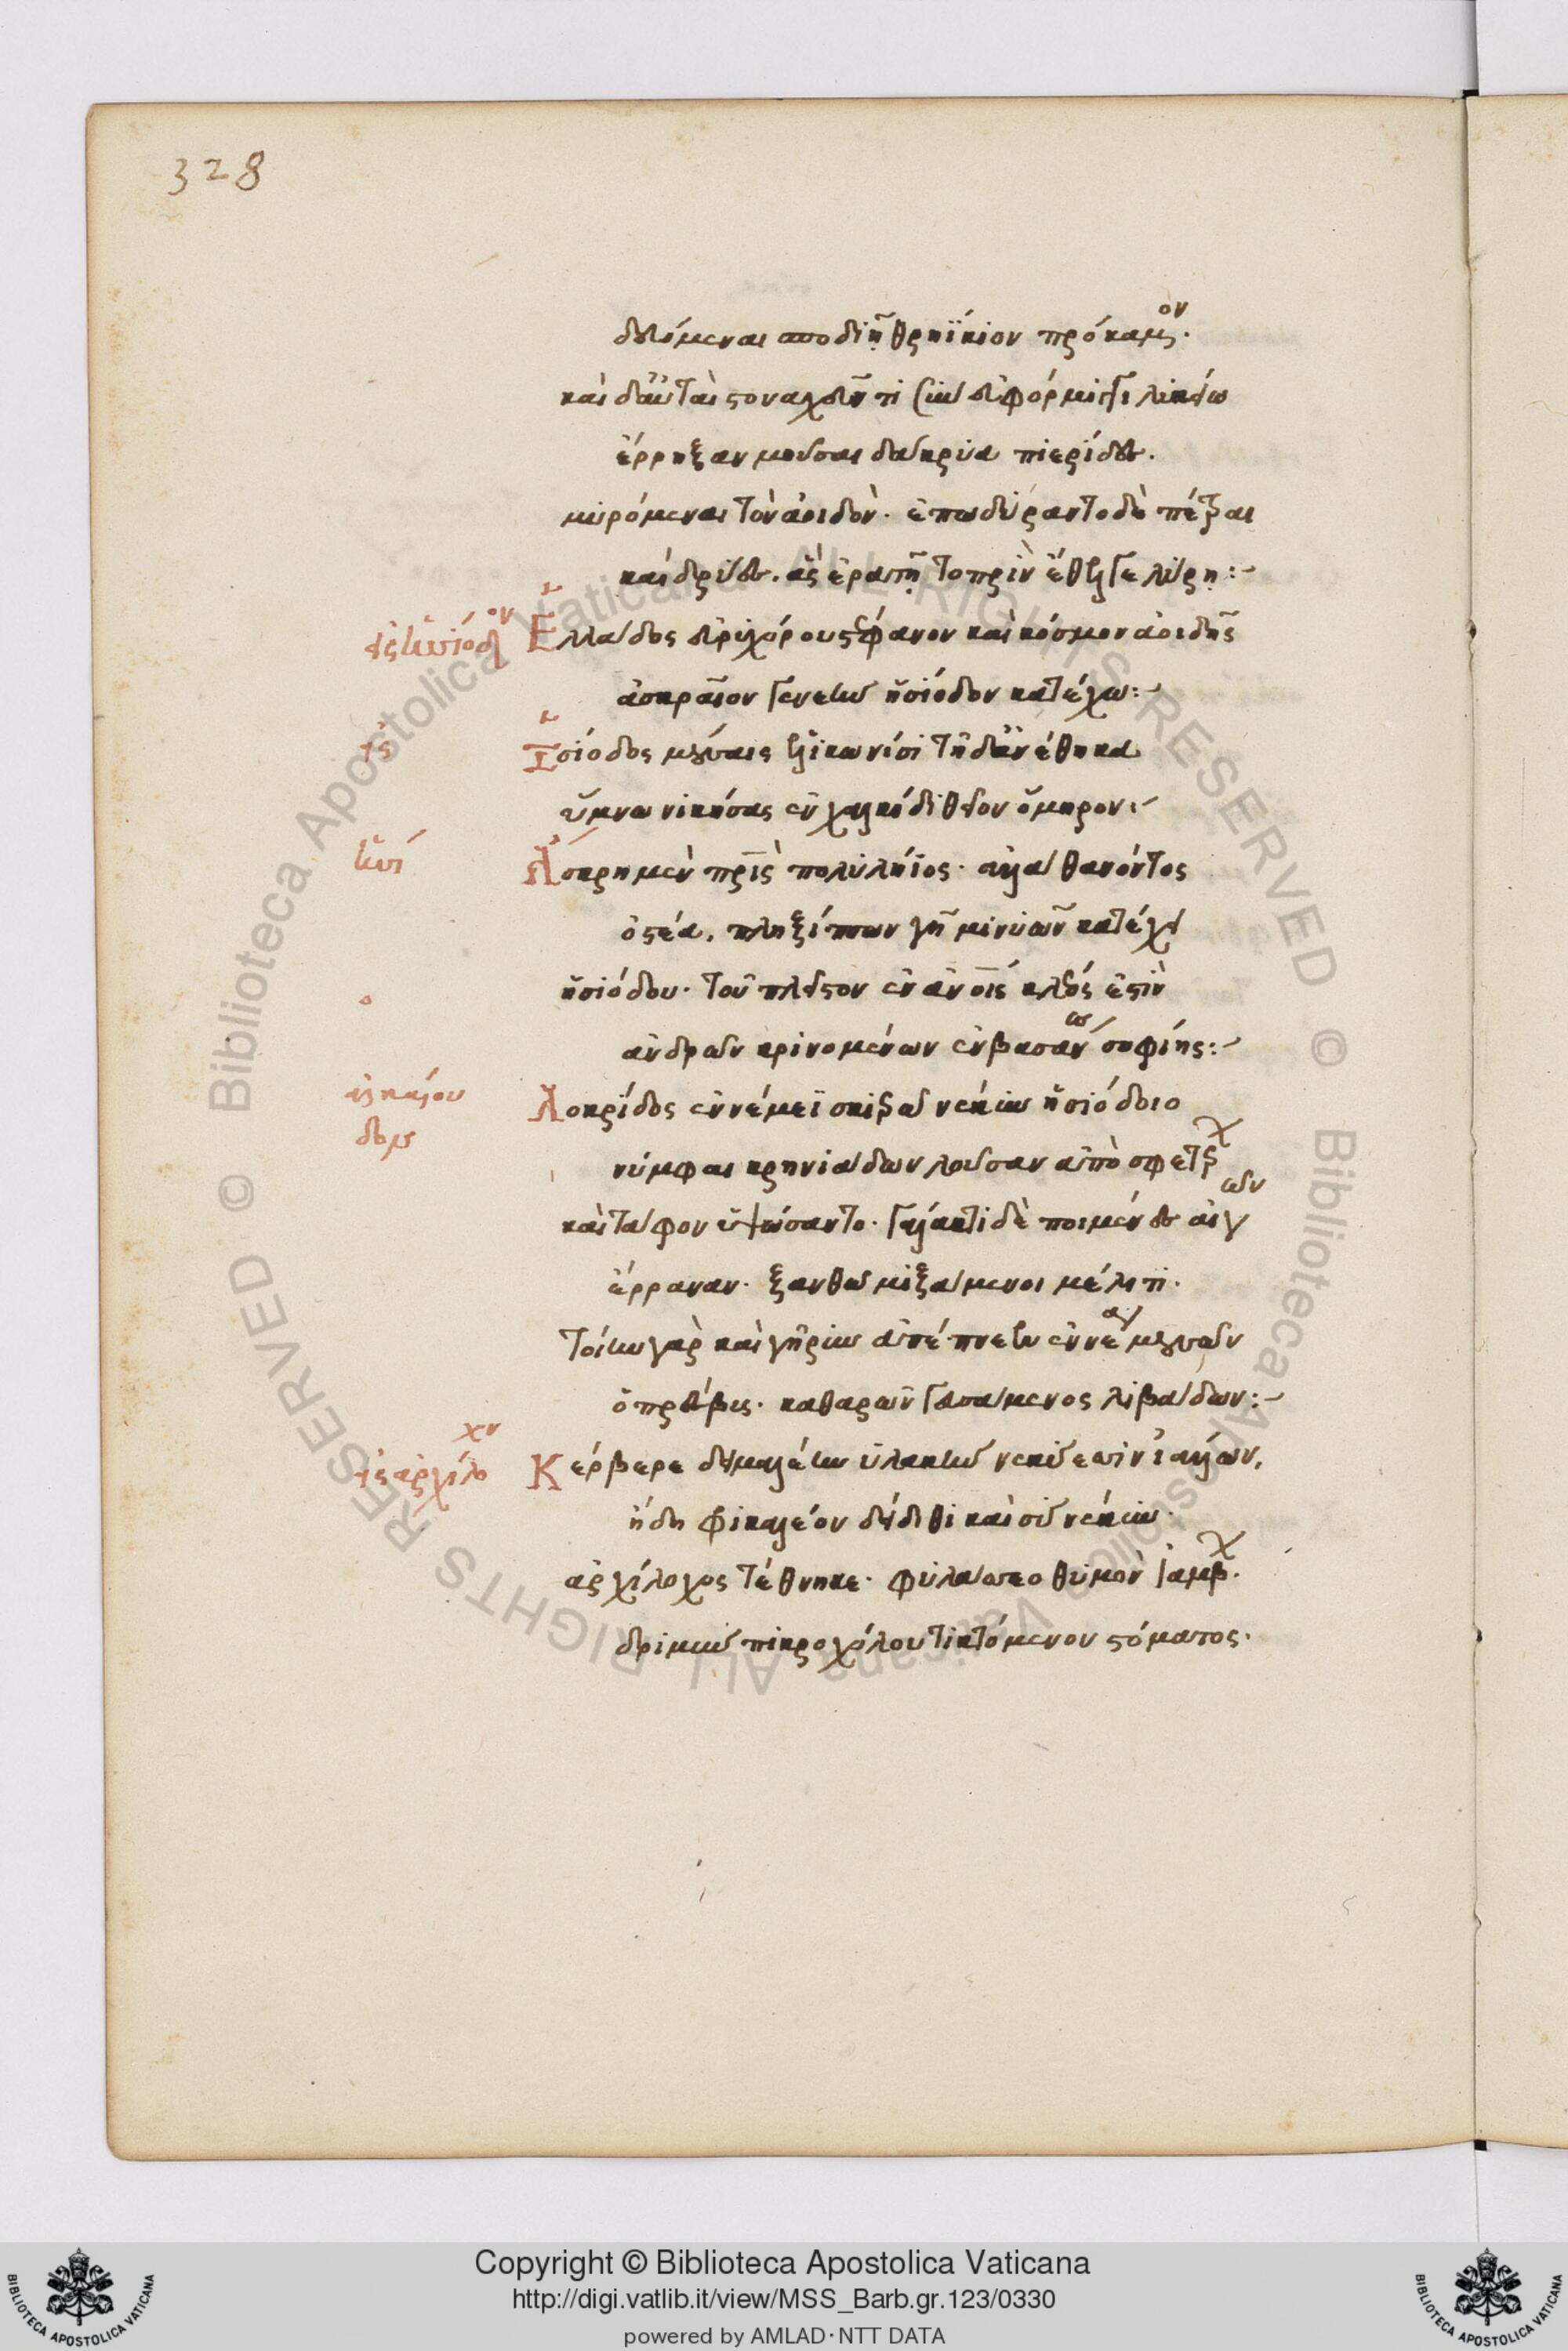 328
δευόμεναι σποδιῇ θρηϊκιον πρόκαμον·
καὶ δ' αὐταὶ στοναχεῦντι σὺν εὐφόρμιγγι λυκείω
ἔρρηξαν μοῦσαι δάκρυα πιερίδες.
μυρόμεναι τὸν ἀοιδὸν· ἐπωδύραντο δὲ πέτραι
καὶ δρύες. ἃς ἐρατῇ τοπρὶν ἔθελγε λύρῃ:~
εἰς ἡσίοδον Ἑλλάδος εὐρυχόρου στέφανον καὶ κόσμον ἀοιδῆς
ἀσκραῖον γενεὴν ἡσίοδον κατέχω:~
εἰς Ἡσίοδος μούσαις ἑλικωνίσι τῆδ' ἀνέθηκα
ὕμνω νικήσας ἐν χαλκίδι θεῖον ὅμηρον:~
Ἄσκρη μὲν πατρὶς πολυλήϊος· ἀλλὰ θανόντος
ὀστέα, πληξίππων γῆ μινυῶν κατέχει
ἡσιόδου· τοῦ πλεῖστον ἐν ἀνοις κλέος ἐστὶν
ἀνδρῶν κρινομένων ἐν βασάνω σοφίης:~
ἀλκαίου Λοκρίδος ἐν νέμεϊ σκιερῶ νέκυν ἡσιόδοιο
νύμφαι κρηνιάδων λοῦσαν ἀπὸ σφετέρων
καὶ τάφον ὑψώσαντο· γάλακτι δὲ ποιμένες αἰγῶν
ἔρραναν· ξανθῶ μιξάμενοι μέλιτι.
τοίην γὰρ καὶ γῆρυν ἀπέπνεεν ἐννέα μουσῶν
ὁ πρέσβυς· καθαρῶν γευσάμενος λιβάδων:~
εἰς ἀρχίλοχον Κέρβερε δειμαλέην ὑλακὴν νεκύεσσιν ἰάλλων,
ἤδη φρικαλέον δείδιθι καὶ σὺ νέκυν
ἀρχίλοχος τέθνηκε· φυλάσσεο θυμὸν ἰάμβων.
δριμὺν πικροχόλου τικτόμενον στόματος.
Copyright © Biblioteca Apostolica Vaticana
http://digi.vatlib.it/view/MSS_Barb.gr.123/0330
powered by AMLAD·NTT DATA